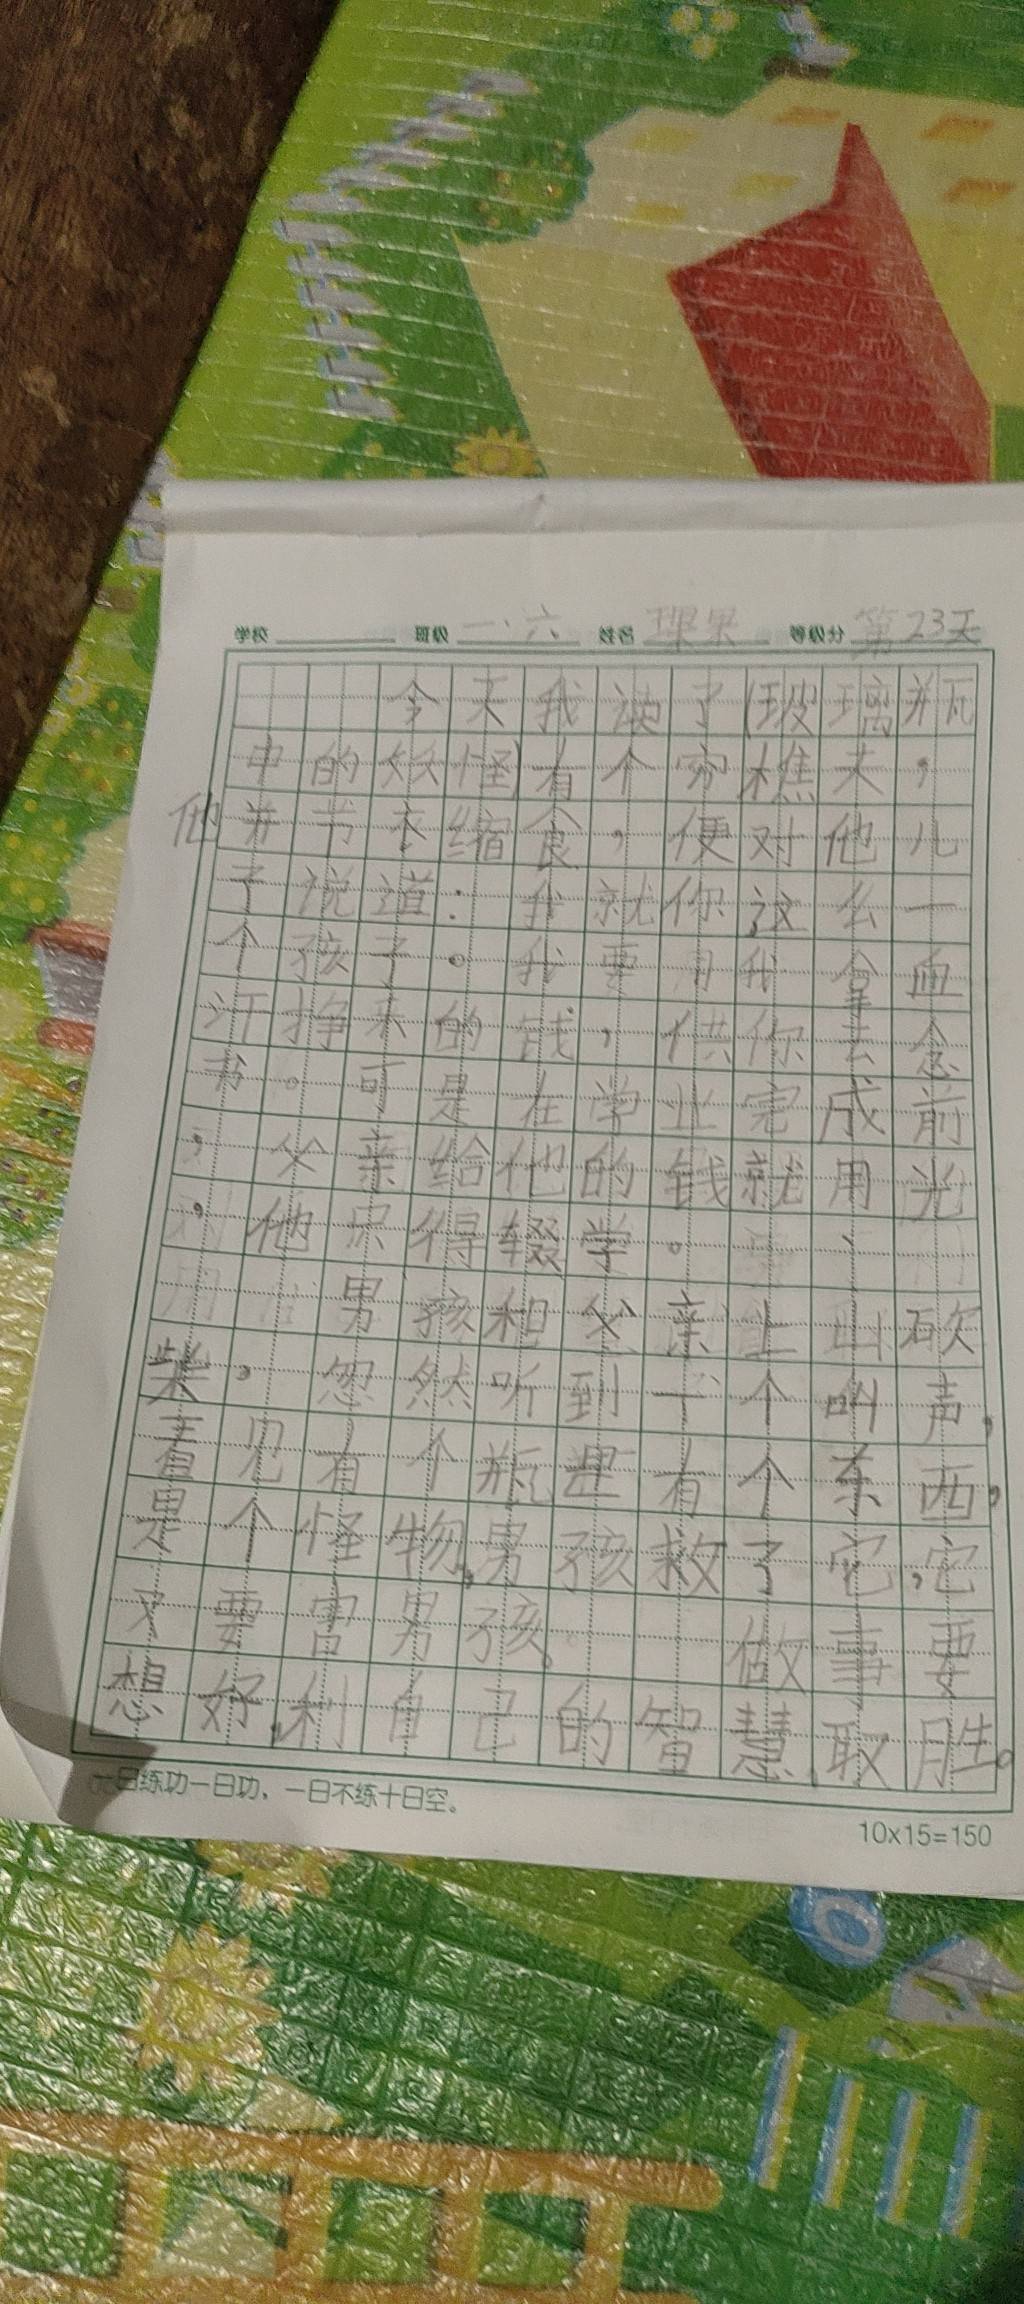 学校 班级 一、六 姓名 果果 等级分 第23天
今天我读了(玻璃瓶
中的妖怪)有个穷樵夫，
他并节衣缩食，便对他儿
子说道：我就你这么一
个孩子。我要用我拿血
汗挣来的钱，供你去念
书。可是在学业完成前
，父亲给他的钱就用光
，他只得辍学。
男孩和父亲上山砍
柴，忽然听到一个叫声，
看见有个瓶里有个东西，
是个怪物，男孩救了它，它
又要害男孩。 做事要
想好，利自己的智慧，取胜。
一日练功一日功，一日不练十日空。
10x15=150